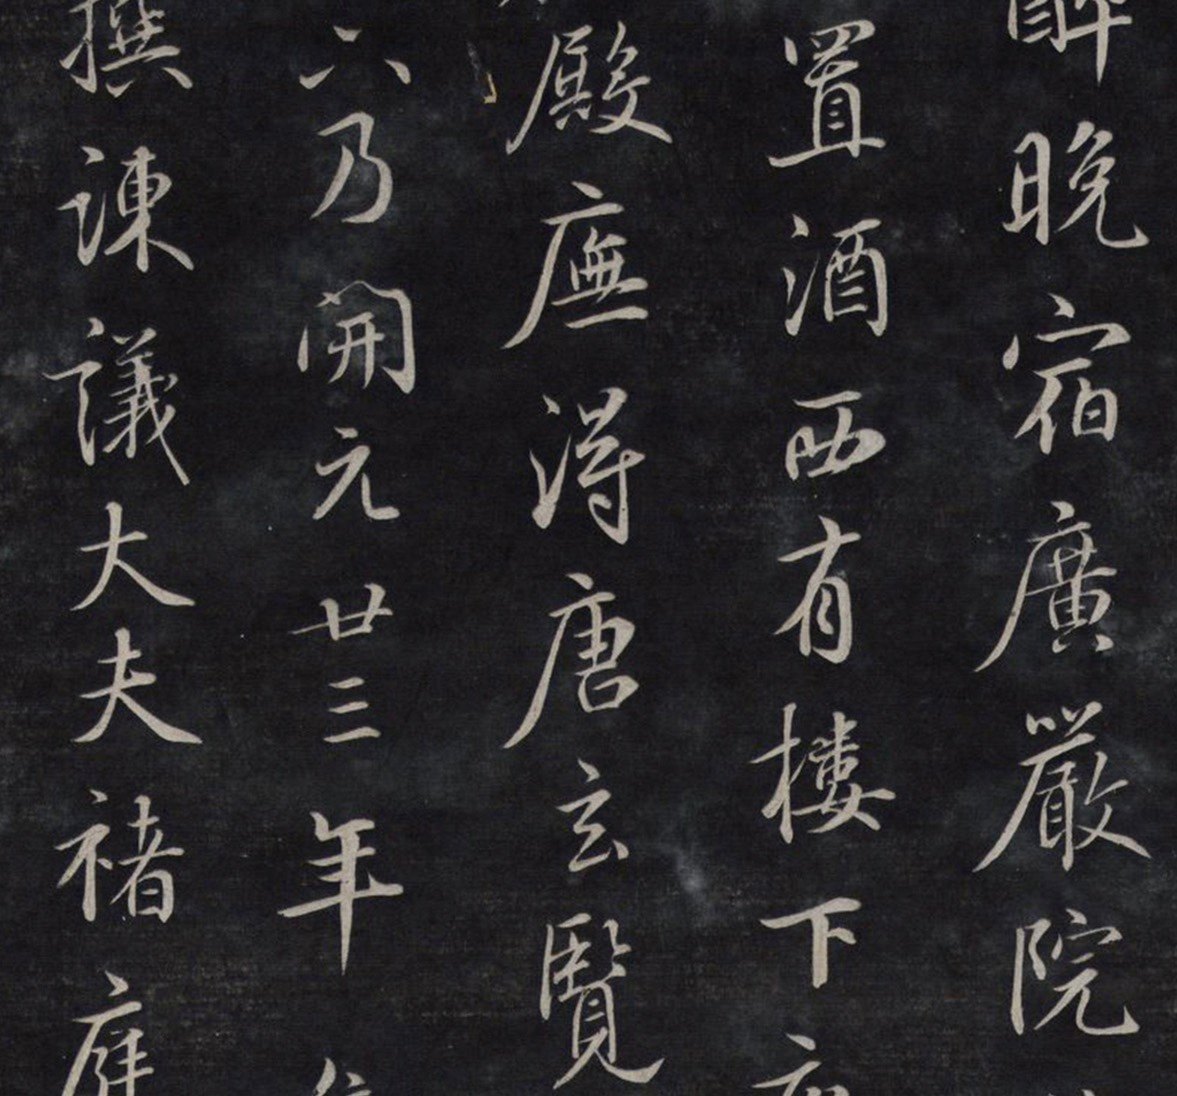 醉晚宿廣嚴院
置酒西有樓下
殿廡得唐玄覽
六乃開元廿三年
撰諫議大夫褚庭